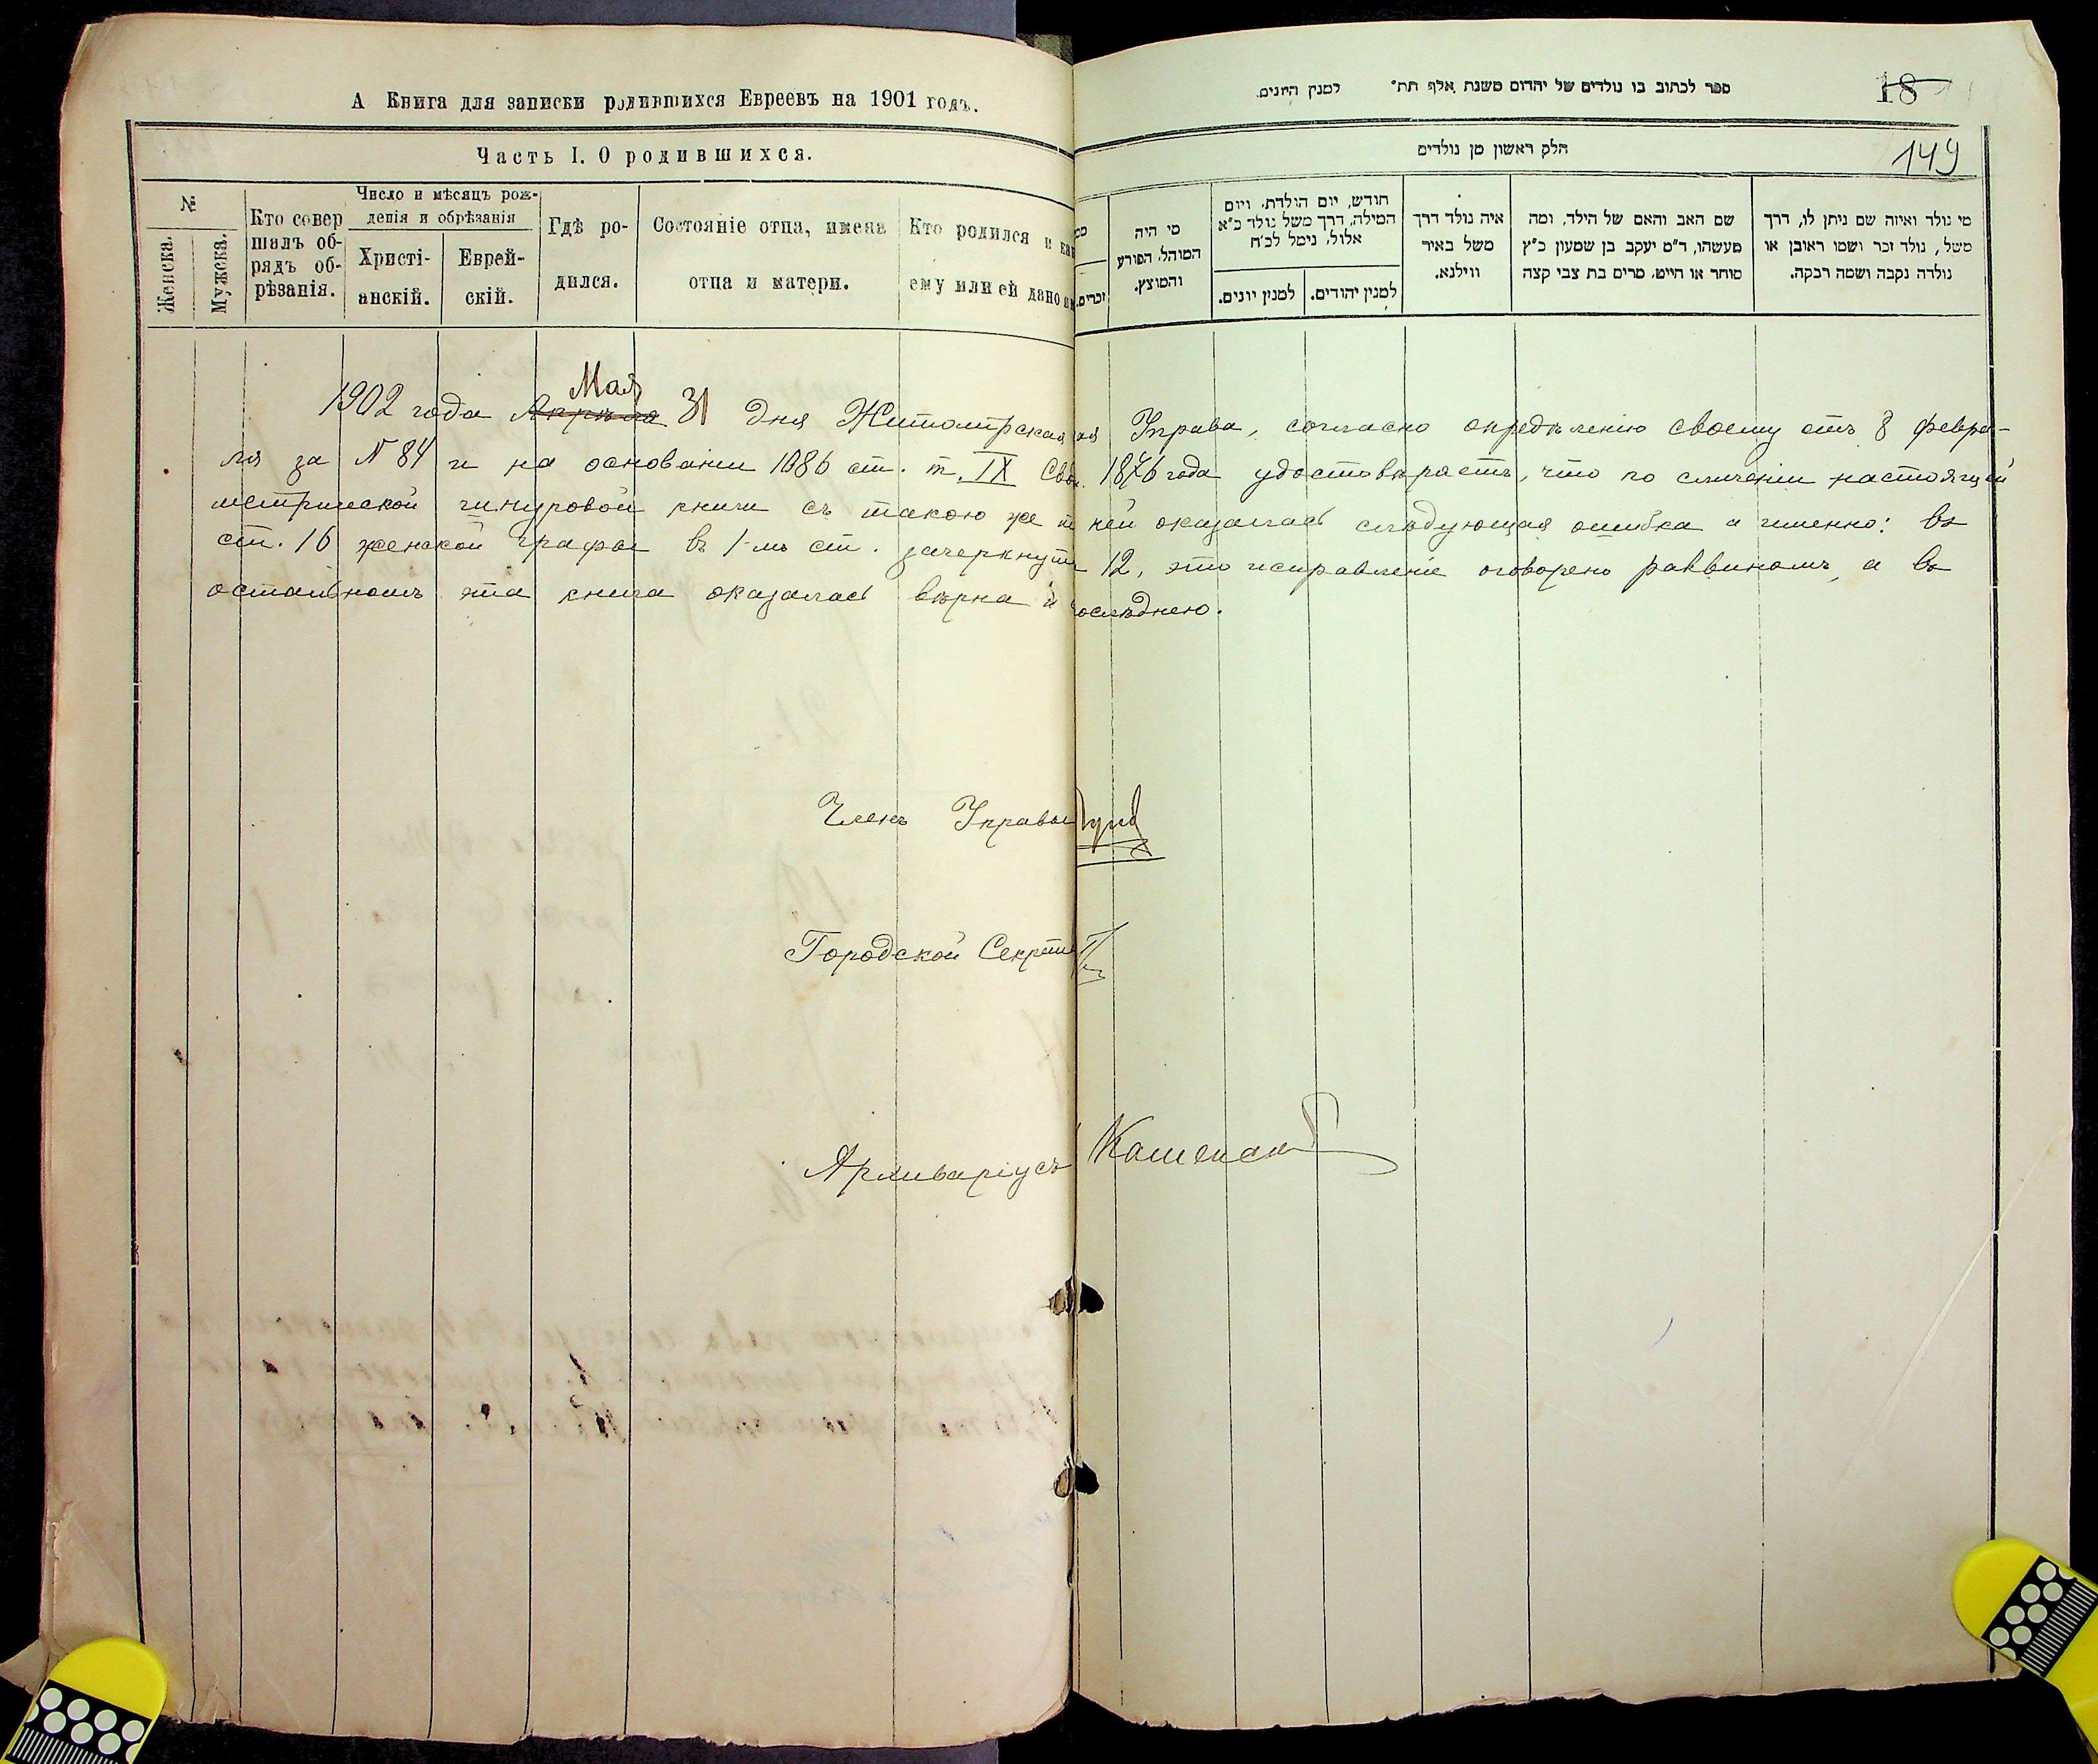 А Книга для записки родившихся Евреевъ на 1901 годъ.
Часть I. О родившихся.
№
Женска.
Мужска.
Кто совер
шалъ об-
рядъ об-
рѣзанія.
Число и мѣсяцъ рож-
денія и обрѣзанія
Христі-
анскій.
Еврей-
скій.
Гдѣ ро-
дился.
Состояніе отца, имена
отца и матери.
Кто родился и как
ему или ей дано
ספר לכתוב בו נולדים של יהדום משנת אלף תת״ למנין היונים.
18
149
חלק ראשון מן נולדים
זכרים.
מי היה
המוהל, הפורע
והמוצץ.
חודש, יום הולדת, ויום
המילה, דרך משל נולד כ״א
אלול, נימל לכ״ח
למנין יונים.
למנין יהודים.
איה נולד דרך
משל באיר
ווילנא.
שם האב והאם של הילד, ומה
מעשהו, ד״מ יעקב בן שמעון כ״ץ
סוחר או חייט, מרים בת צבי קצה
מי נולד ואיזה שם ניתן לו, דרך
משל, נולד זכר ושמו ראובן או
נולדה נקבה ושמה רבקה.
Мая
1902 года Апрѣля 31 дня Житомирская Управа, согласно опредѣленію своему отъ 8 февра-
ля за N 84 и на основаніи 1086 ст. т. IX Свод. 1876 года удостовѣряетъ, что по сличеніи настоящей
метрической шнуровой книги съ такою же ней оказалась слѣдующая ошибка а именно: въ
ст. 16 женской графы въ 1-мъ ст. зачеркнуто 12, это исправленіе оговорено раввиномъ, а въ
остальномъ эта книга оказалась вѣрна послѣднею.
Членъ Управы
Городской Секрет
Архиваріусъ Каменск